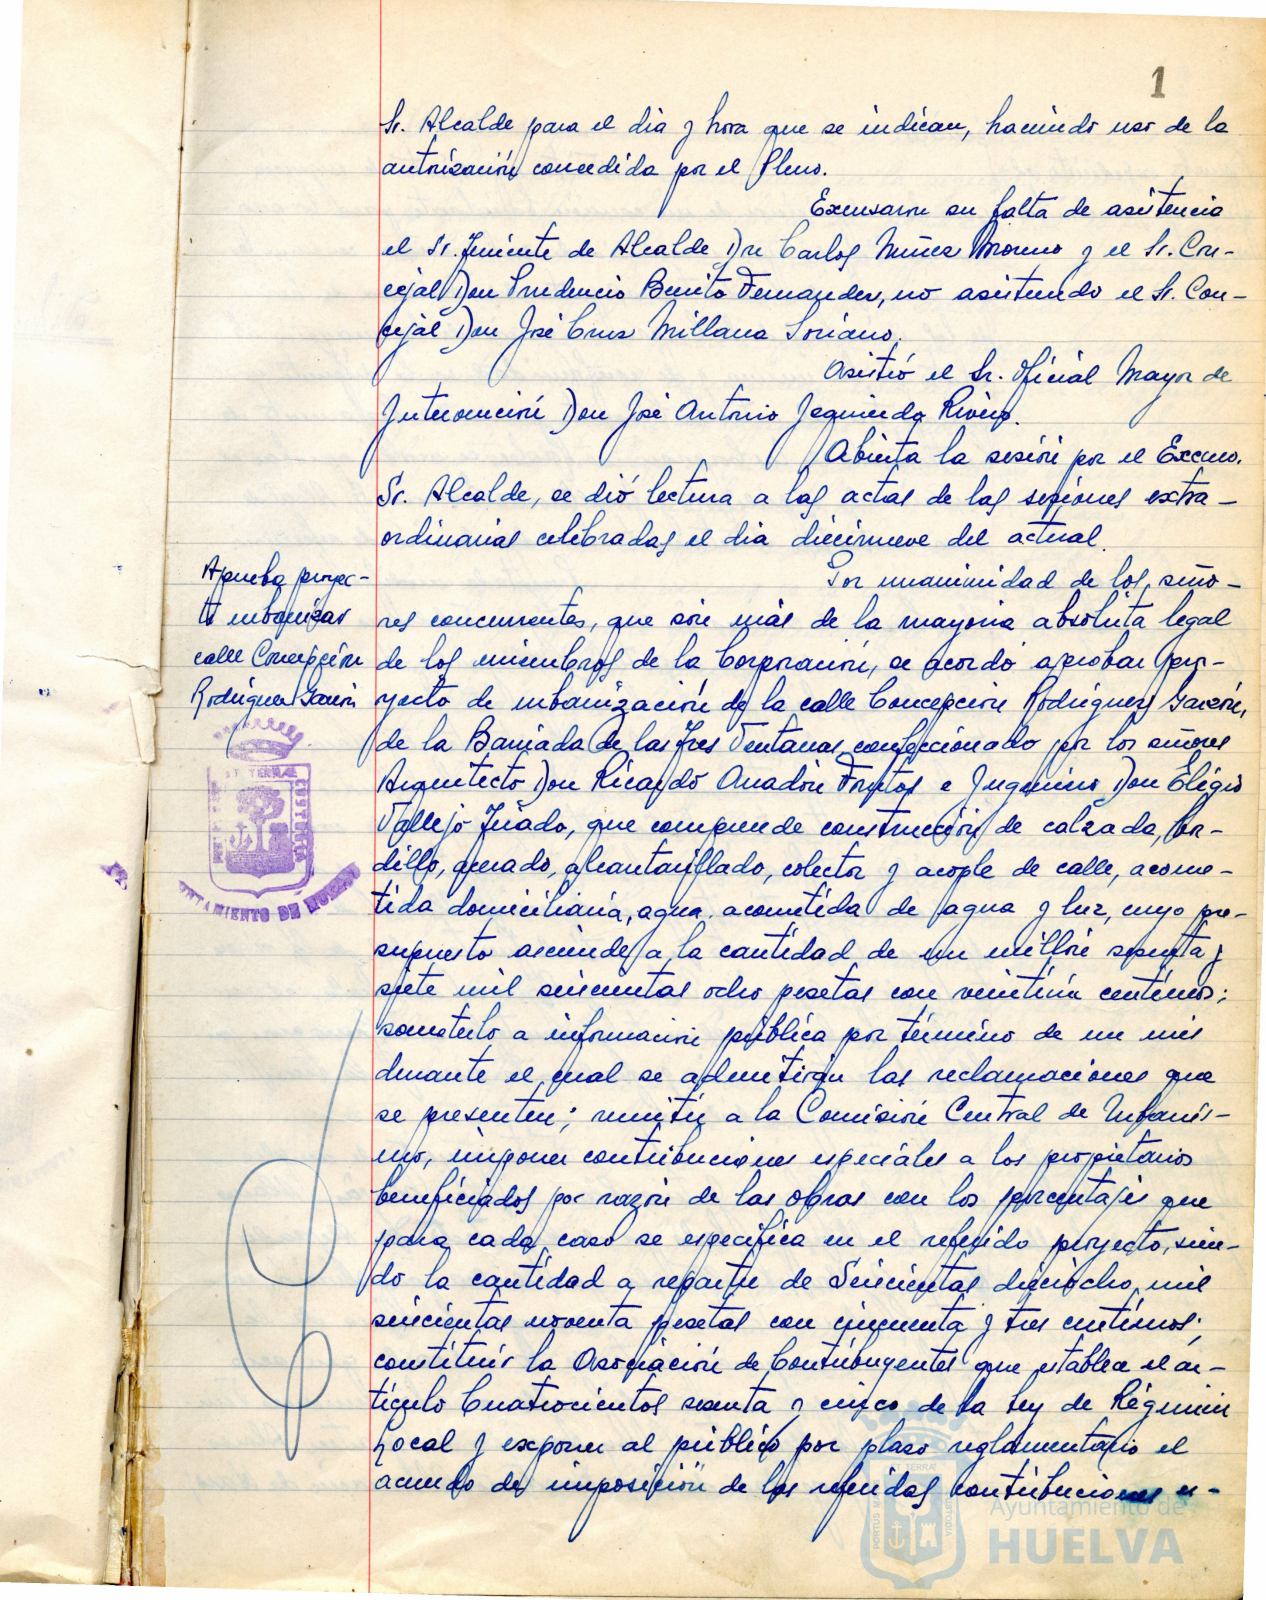 1
Sr. Alcalde para el dia y hora que se indican, haciendo uso de la
autorización concedida por el Pleno.
Excusaron su falta de asistencia
el Sr. Teniente de Alcalde Don Carlos Núñez Moreno y el Sr. Con-
cejal Don Prudencio Benito Fernandez, no asistiendo el Sr. Con-
cejal Don José Cruz Millana Soriano.
Asistió el Sr. Oficial Mayor de
Intervención Don José Antonio Izquierdo Rivero.
Abierta la sesión por el Excmo.
Sr. Alcalde, se dió lectura a las actas de las sesiones extra-
ordinarias celebradas el dia diecinueve del actual.
Aprueba proyec-
to urbanizar
calle Concepción
Rodriguez Garzón
Por unanimidad de los seño-
res concurrentes, que son más de la mayoria absoluta legal
de los miembros de la Corporación, se acordó aprobar pro-
yecto de urbanización de la calle Concepción Rodríguez Garzón,
de la Barriada de las Tres Ventanas confeccionado por los señores
Arquitecto Don Ricardo Anadón Frutos e Ingeniero Don Eligio
Vallejo Triado, que comprende construcción de calzada, bor-
dillo, acerado, alcantarillado, colector y acople de calle, acome-
tida domiciliaria, agua, acometida de agua y luz, cuyo pre-
supuesto asciende a la cantidad de un millón sesenta y
siete mil seiscientas ocho pesetas con veintiún centimos;
someterlo a información pública por término de un mes
durante el cual se admitirán las reclamaciones que
se presenten; remitir a la Comisión Central de Urbanis-
mo, imponer contribuciones especiales a los propietarios
beneficiados por razón de las obras con los porcentajes que
para cada caso se especifica en el referido proyecto, sien-
do la cantidad a repartir de Seiscientas dieciocho mil
seiscientas noventa pesetas con cincuenta y tres centimos;
constituir la Asociación de Contribuyentes que establece el ar-
tículo Cuatrocientos sesenta y cinco de la Ley de Régimen
Local y exponer al público por plazo reglamentario el
acuerdo de imposición de las referidas contribuciones es-
AYUNTAMIENTO DE HUELVA
Ayuntamiento de
HUELVA